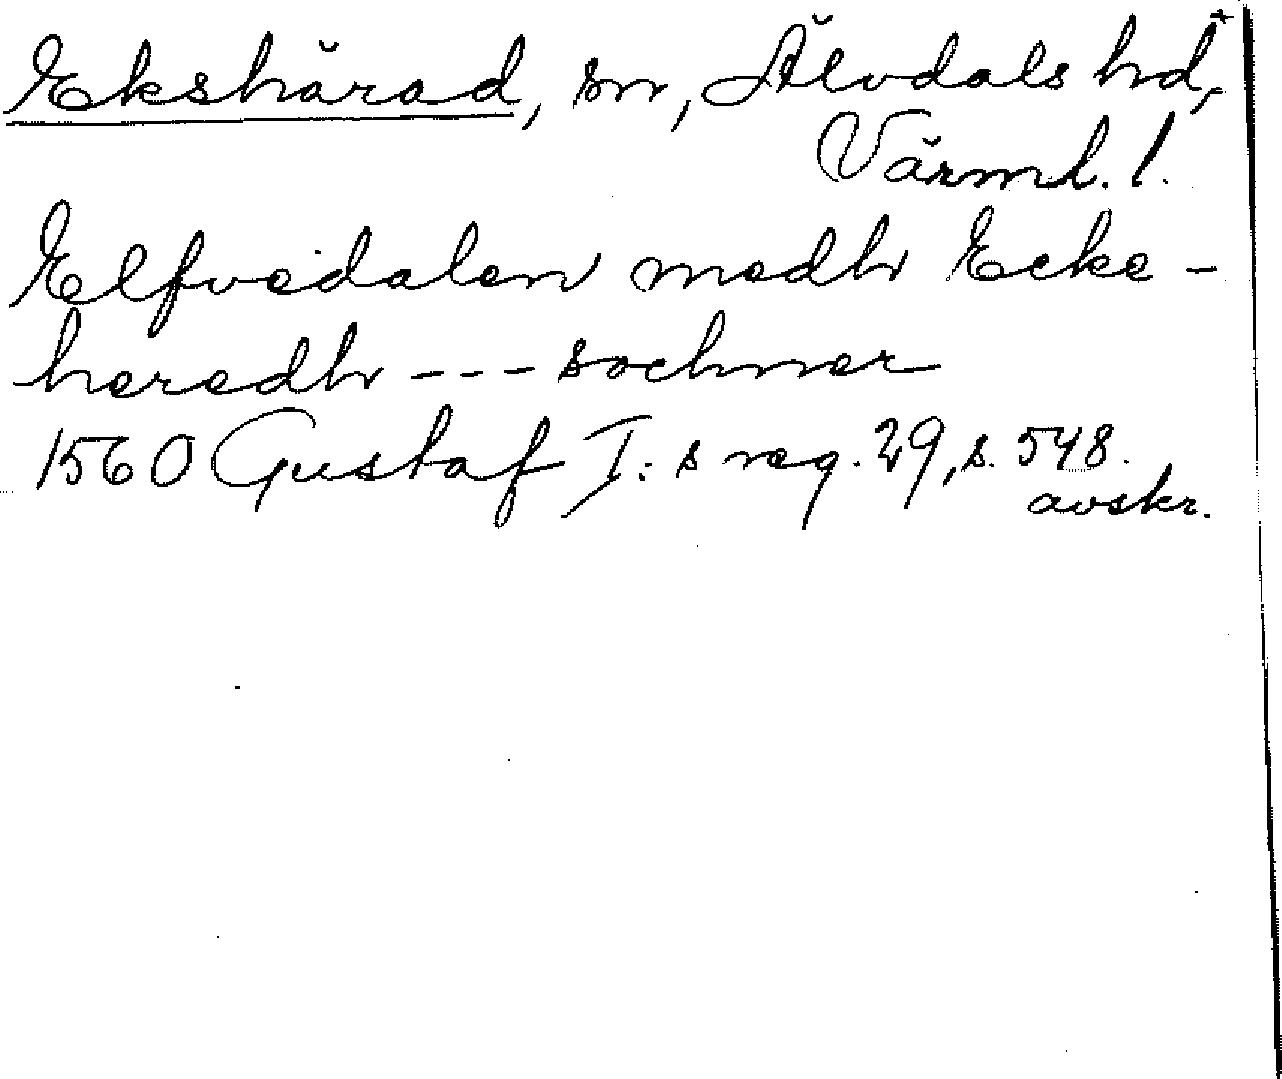 Ekshärad, sn, Älvdals hd,
Värml. l.
Elfvedalen medh Ecke-
heredh --- sochner
1560 Gustaf I:s reg. 29, s. 548.
avskr.